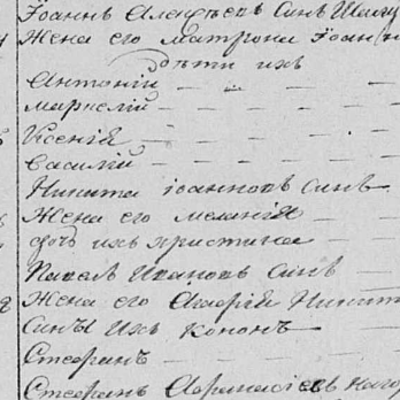 Іоаннъ Алексѣевъ Синъ
Жена его матрона Іоан
дѣти ихъ
Антоній
маркелій
Ксенія
Василій
Никита іоанновъ Синъ
Жена его меланія
дочь ихъ христина
Павелъ Ивановъ Синъ
Жена его Никит
Сины Ихъ кононъ
Стефанъ
Стефанъ Афанасіевъ